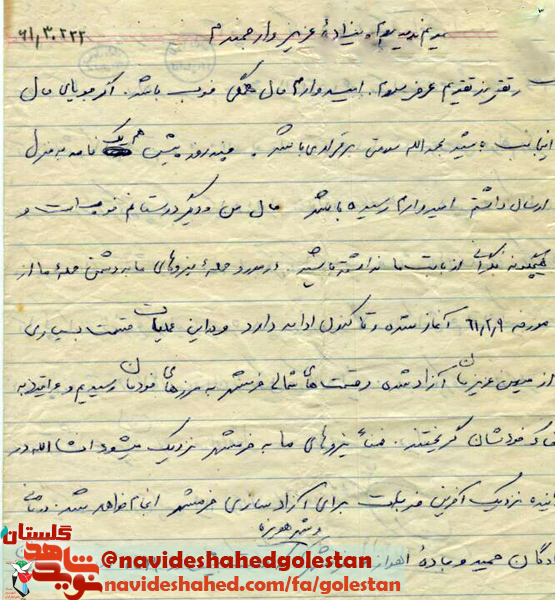 ۶۱/۳/۲۲
عزیز و ارجمندم
تقدیم عرض سلام. امیدوارم حال همگی خوب باشد. اگر جویای حال
اینجانب باشید بحمدالله سلامتی برقرار می باشد. چند روز پیش هم یک نامه به منزل
ارسال داشتم امیدوارم رسیده باشد حال من و دیگر دوستانم خوب است و
هیچگونه نگرانی از بابت ما نداشته باشید. در مورد حمله نیروهای ما به دشمن حمله ما از
مورخه ۶۱/۲/۹ آغاز شده و تا کنون ادامه دارد و در این عملیات قسمت بسیاری
از میهن عزیزمان آزاد شده و قسمت های شمالی خرمشهر به مرزهای خودمان رسیدیم و عراقیها به
خاک خودشان گریختند. ضمناً نیروهای ما به خرمشهر نزدیک میشود انشاالله در
آینده نزدیک آخرین ضربات برای آزاد سازی خرمشهر انجام خواهد شد.
و شهر هویزه
پادگان حمید و جاده اهواز
گلستان
نوید شاهد
@navideshahedgolestan
navideshahed.com/fa/golestan